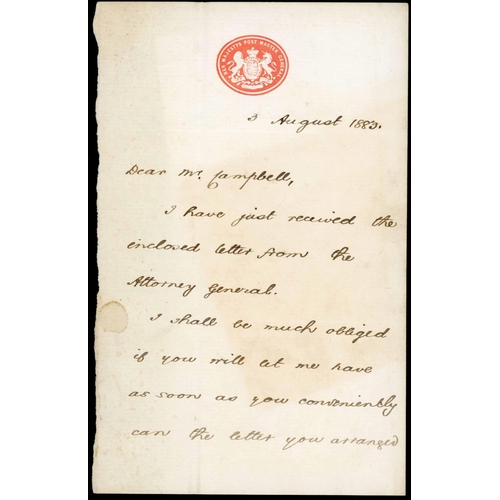 HER MAJESTYS POST MASTER GENERAL
3 August 1883.
Dear Mr. Campbell,
I have just received the
enclosed letter from the
Attorney General.
I shall be much obliged
if you will let me have
as soon as you conveniently
can the letter you arranged